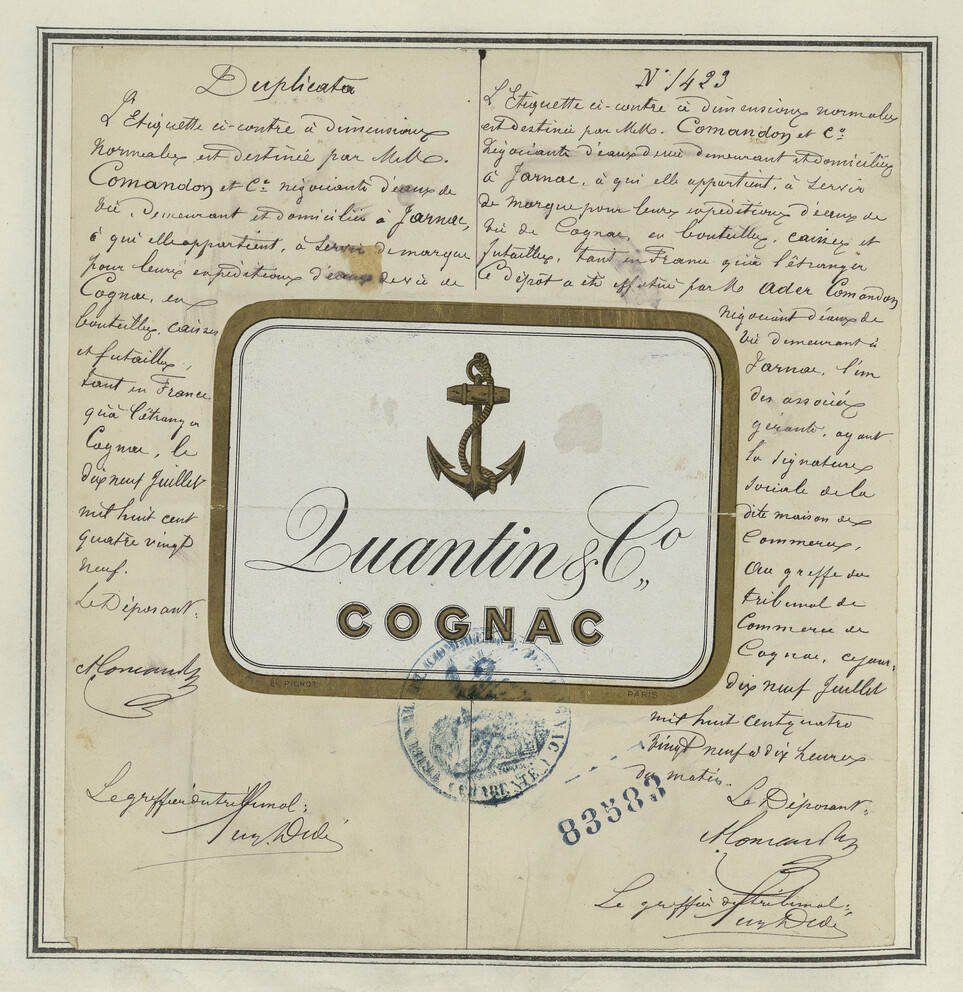 Duplicata
L'Etiquette ci-contre à dimensions
normales est destinée par MM.
Comandon et Cie négociants d'eaux de
vie, demeurant et domiciliés à Jarnac,
à qui elle appartient, à servir de marque
pour leurs expéditions d'eaux de vie de
Cognac, en
bouteilles, caisses
et futailles,
tant en France
qu'à l'étranger
Cognac, le
dix neuf Juillet
mil huit cent
quatre vingt
neuf.
Le Déposant:
Le greffier du tribunal:
N° 1423
L'Etiquette ci-contre à dimensions normales
est destinée par MM. Comandon et Cie
négociants d'eaux de vie demeurant et domiciliés
à Jarnac, à qui elle appartient, à servir
de marque pour leurs expéditions d'eaux de
vie de Cognac, en bouteilles, caisses et
futailles, tant en France qu'à l'étranger
Le dépôt a été effectué par M. Ader Comandon
négociant d'eaux de
vie demeurant à
Jarnac, l'un
des associés
gérants, ayant
la signature
sociale de la
dite maison de
Commerce,
au greffe du
tribunal de
Commerce de
Cognac, ce jour:
dix neuf Juillet
mil huit cent quatre
vingt neuf à dix heures
du matin.
Le Déposant:
Le greffier du tribunal:
Quantin & Co
COGNAC
PICHOT
PARIS
CHARENTE
83583